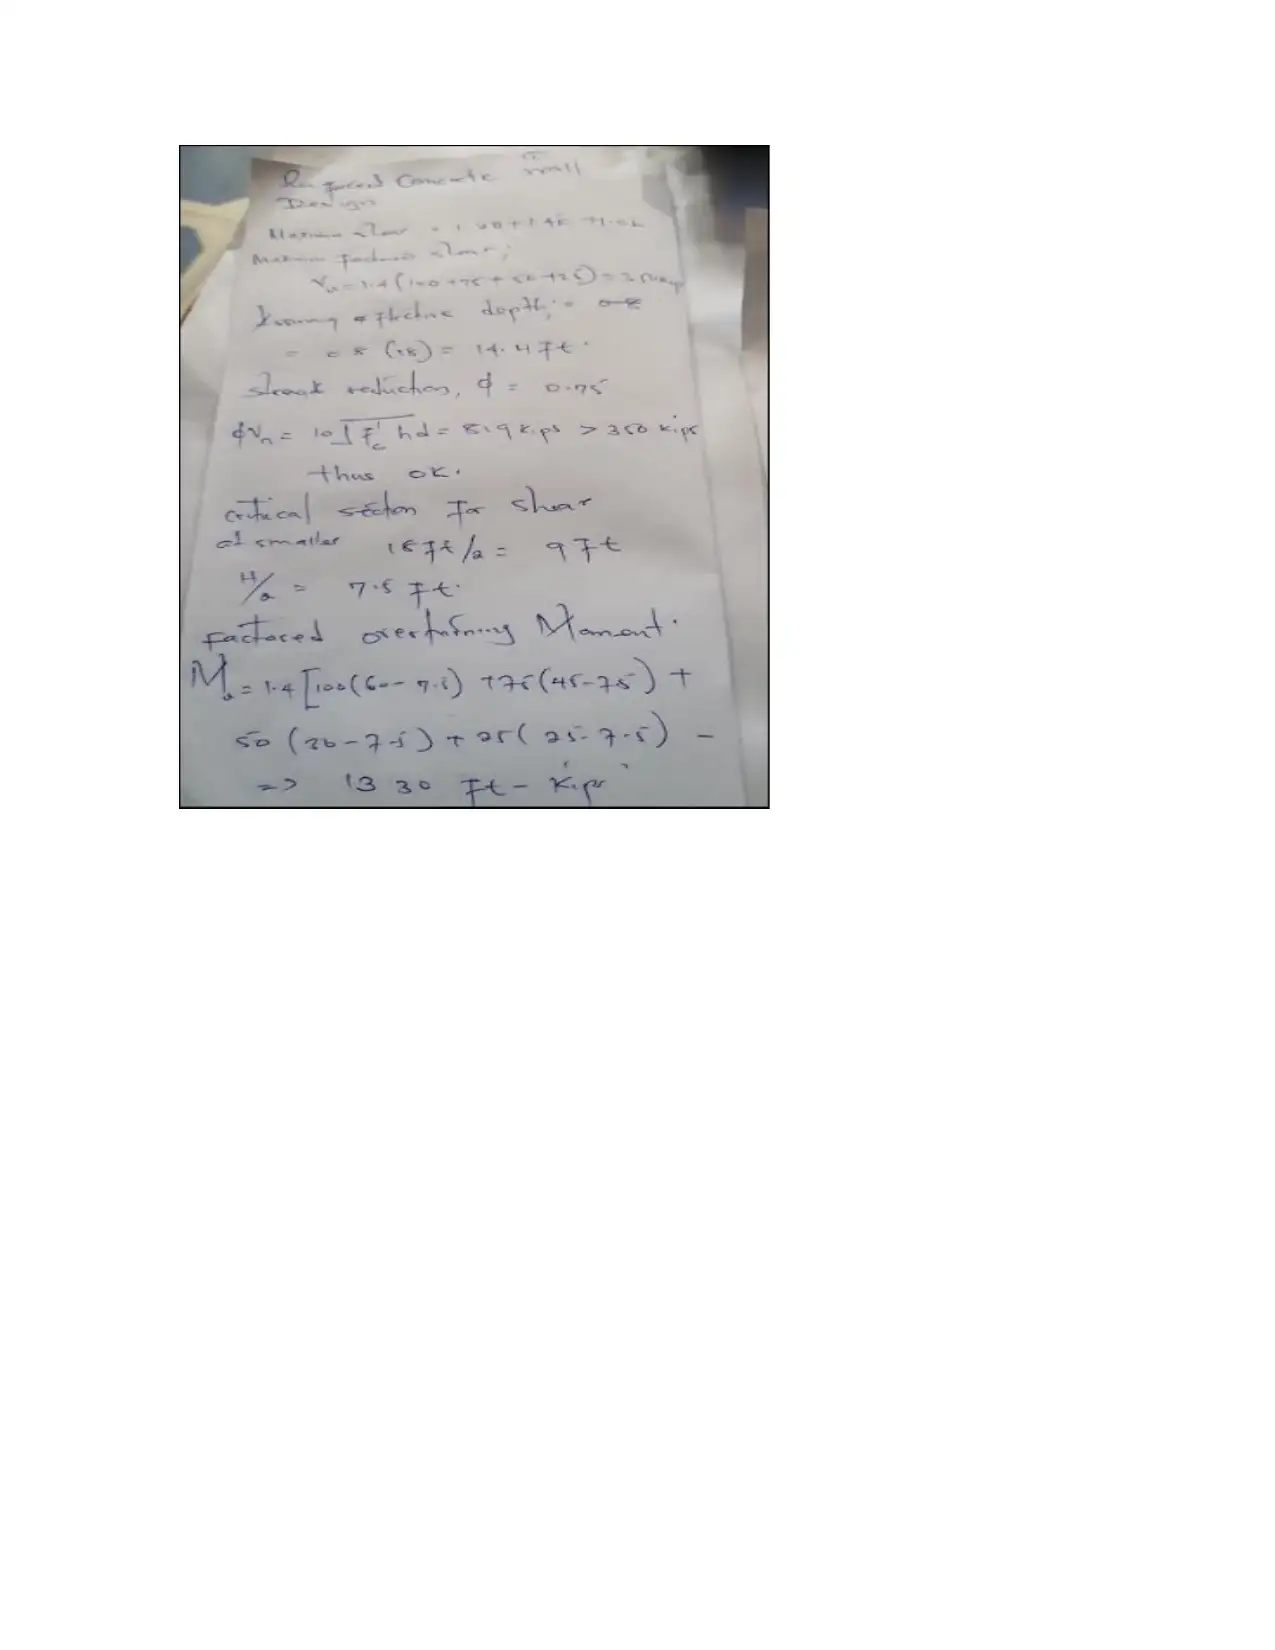 Reinforced Concrete Wall
Design
Maximum shear = 1.2D + 1.4E + 1.0L
Maximum factored shear;
Vu = 1.4 (100 + 75 + 50 + 25) = 350 kip
effective depth; =
= 0.8 (18) = 14.4 Ft.
reduction, ϕ = 0.75
ϕVn = 10√F'c hd = 819 kips > 350 kips
thus ok.
critical section For shear
at smaller 18 Ft/2 = 9 Ft
H/2 = 7.5 Ft.
Factored overturning Moment.
Mu = 1.4 [100(60 - 7.5) + 75(45 - 7.5) +
50 (30 - 7.5) + 25 ( 25 - 7.5) -
=> 13 30 Ft - kips